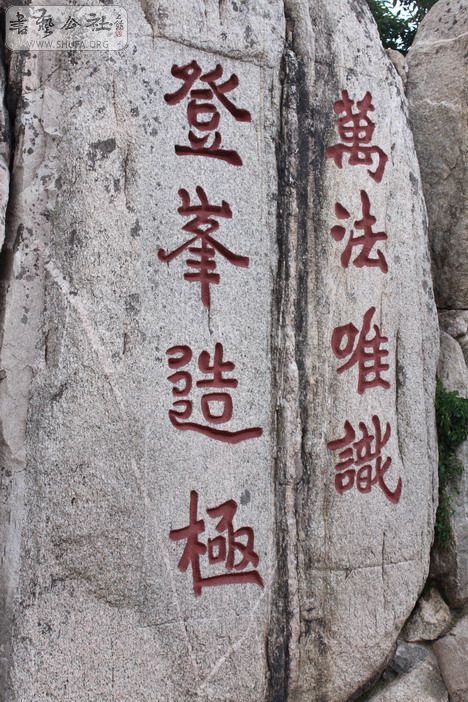 萬法唯識
登峯造極
書藝公社
WWW.SHUFA.ORG